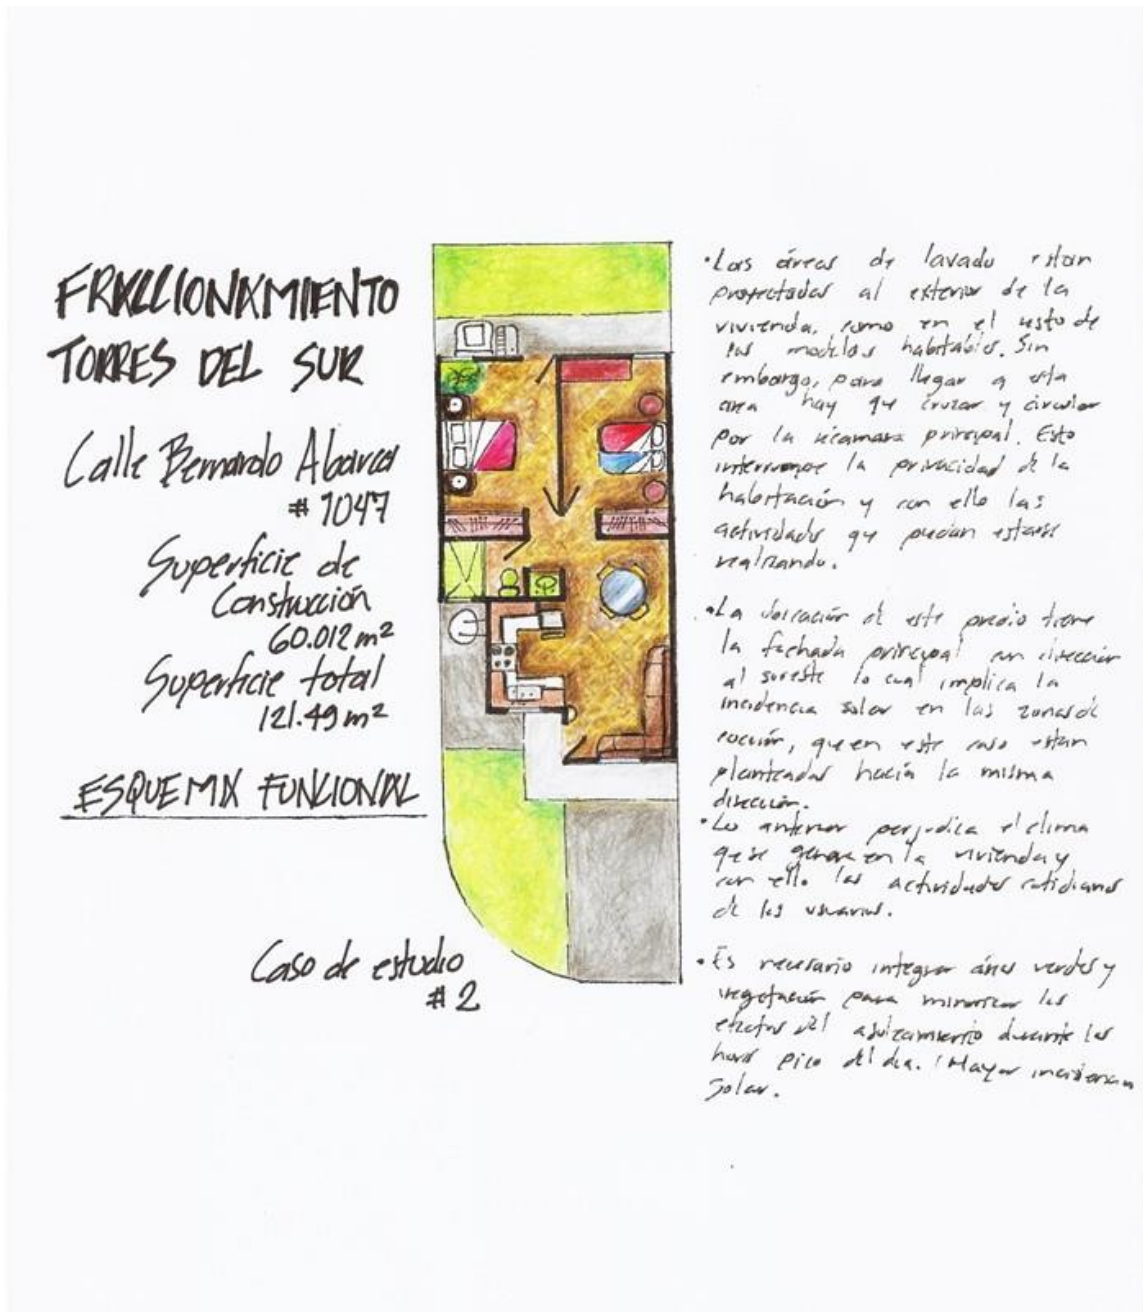 FRACCIONAMIENTO
TORRES DEL SUR
Calle Bernardo Abarca
# 1047
Superficie de
Construcción
60.012 m²
Superficie total
121.49 m²
ESQUEMA FUNCIONAL
Caso de estudio
# 2
• Las áreas de lavado estan
proyectadas al exterior de la
vivienda, como en el resto de
los modelos habitables. Sin
embargo, para llegar a esta
area hay qe cruzar y circular
por la recamara principal. Esto
interrumpe la privacidad de la
habitación y con ello las
actividades qe puedan estarse
realizando.
• La ubicación de este predio tiene
la fachada principal con dirección
al sureste lo cual implica la
incidencia solar en las zonas de
cocción, que en este caso estan
planteadas hacia la misma
dirección.
• Lo anterior perjudica el clima
qe se genera en la vivienda y
con ello las actividades cotidianas
de los usuarios.
• Es necesario integrar áreas verdes y
vegetación para minorizar los
efectos del asoleamiento durante las
horas pico del dia. Mayor incidencia
solar.